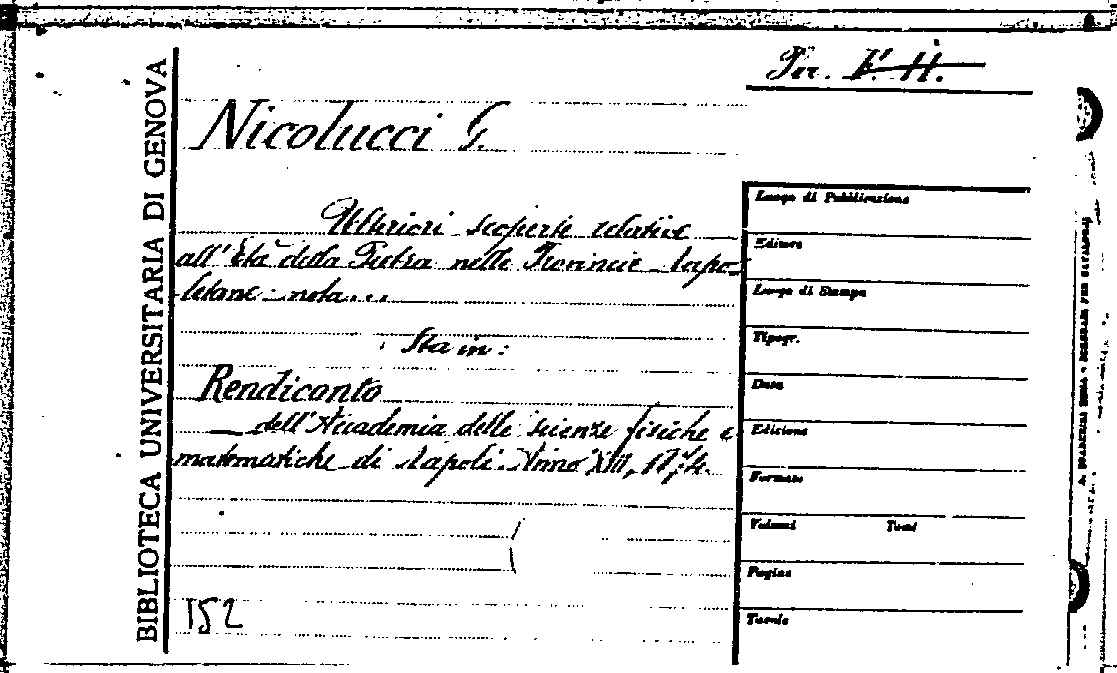 Per. F. II.
BIBLIOTECA UNIVERSITARIA DI GENOVA
Nicolucci G.
Ulteriori scoperte relative
all'Età della Pietra nelle Provincie Napo-
letane: nota...
Sta in:
Rendiconto
dell'Accademia delle scienze fisiche e
matematiche di Napoli. Anno XIII,
152
Luogo di Pubblicazione
Editore
Luogo di Stampa
Tipogr.
Data
Edizione
Formato
Volumi Tomi
Pagine
Tavole